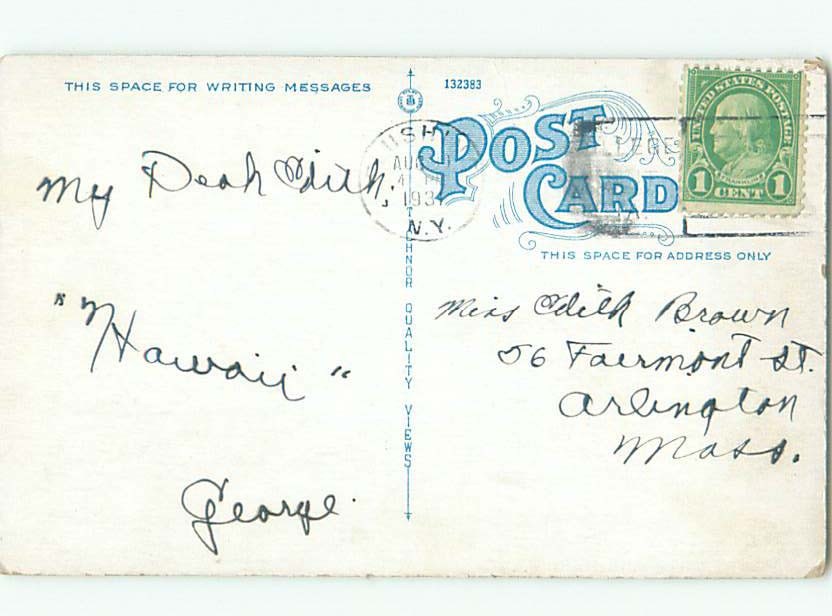 THIS SPACE FOR WRITING MESSAGES
132383
My Dear Edith.
"Hawaii"
George.
TECHNOR QUALITY VIEWS
AUG
193
N.Y.
POST CARD
THIS SPACE FOR ADDRESS ONLY
UNITED STATES POSTAGE
FRANKLIN
1 CENT 1
Miss Edith Brown
56 Fairmont St.
Arlington
Mass.